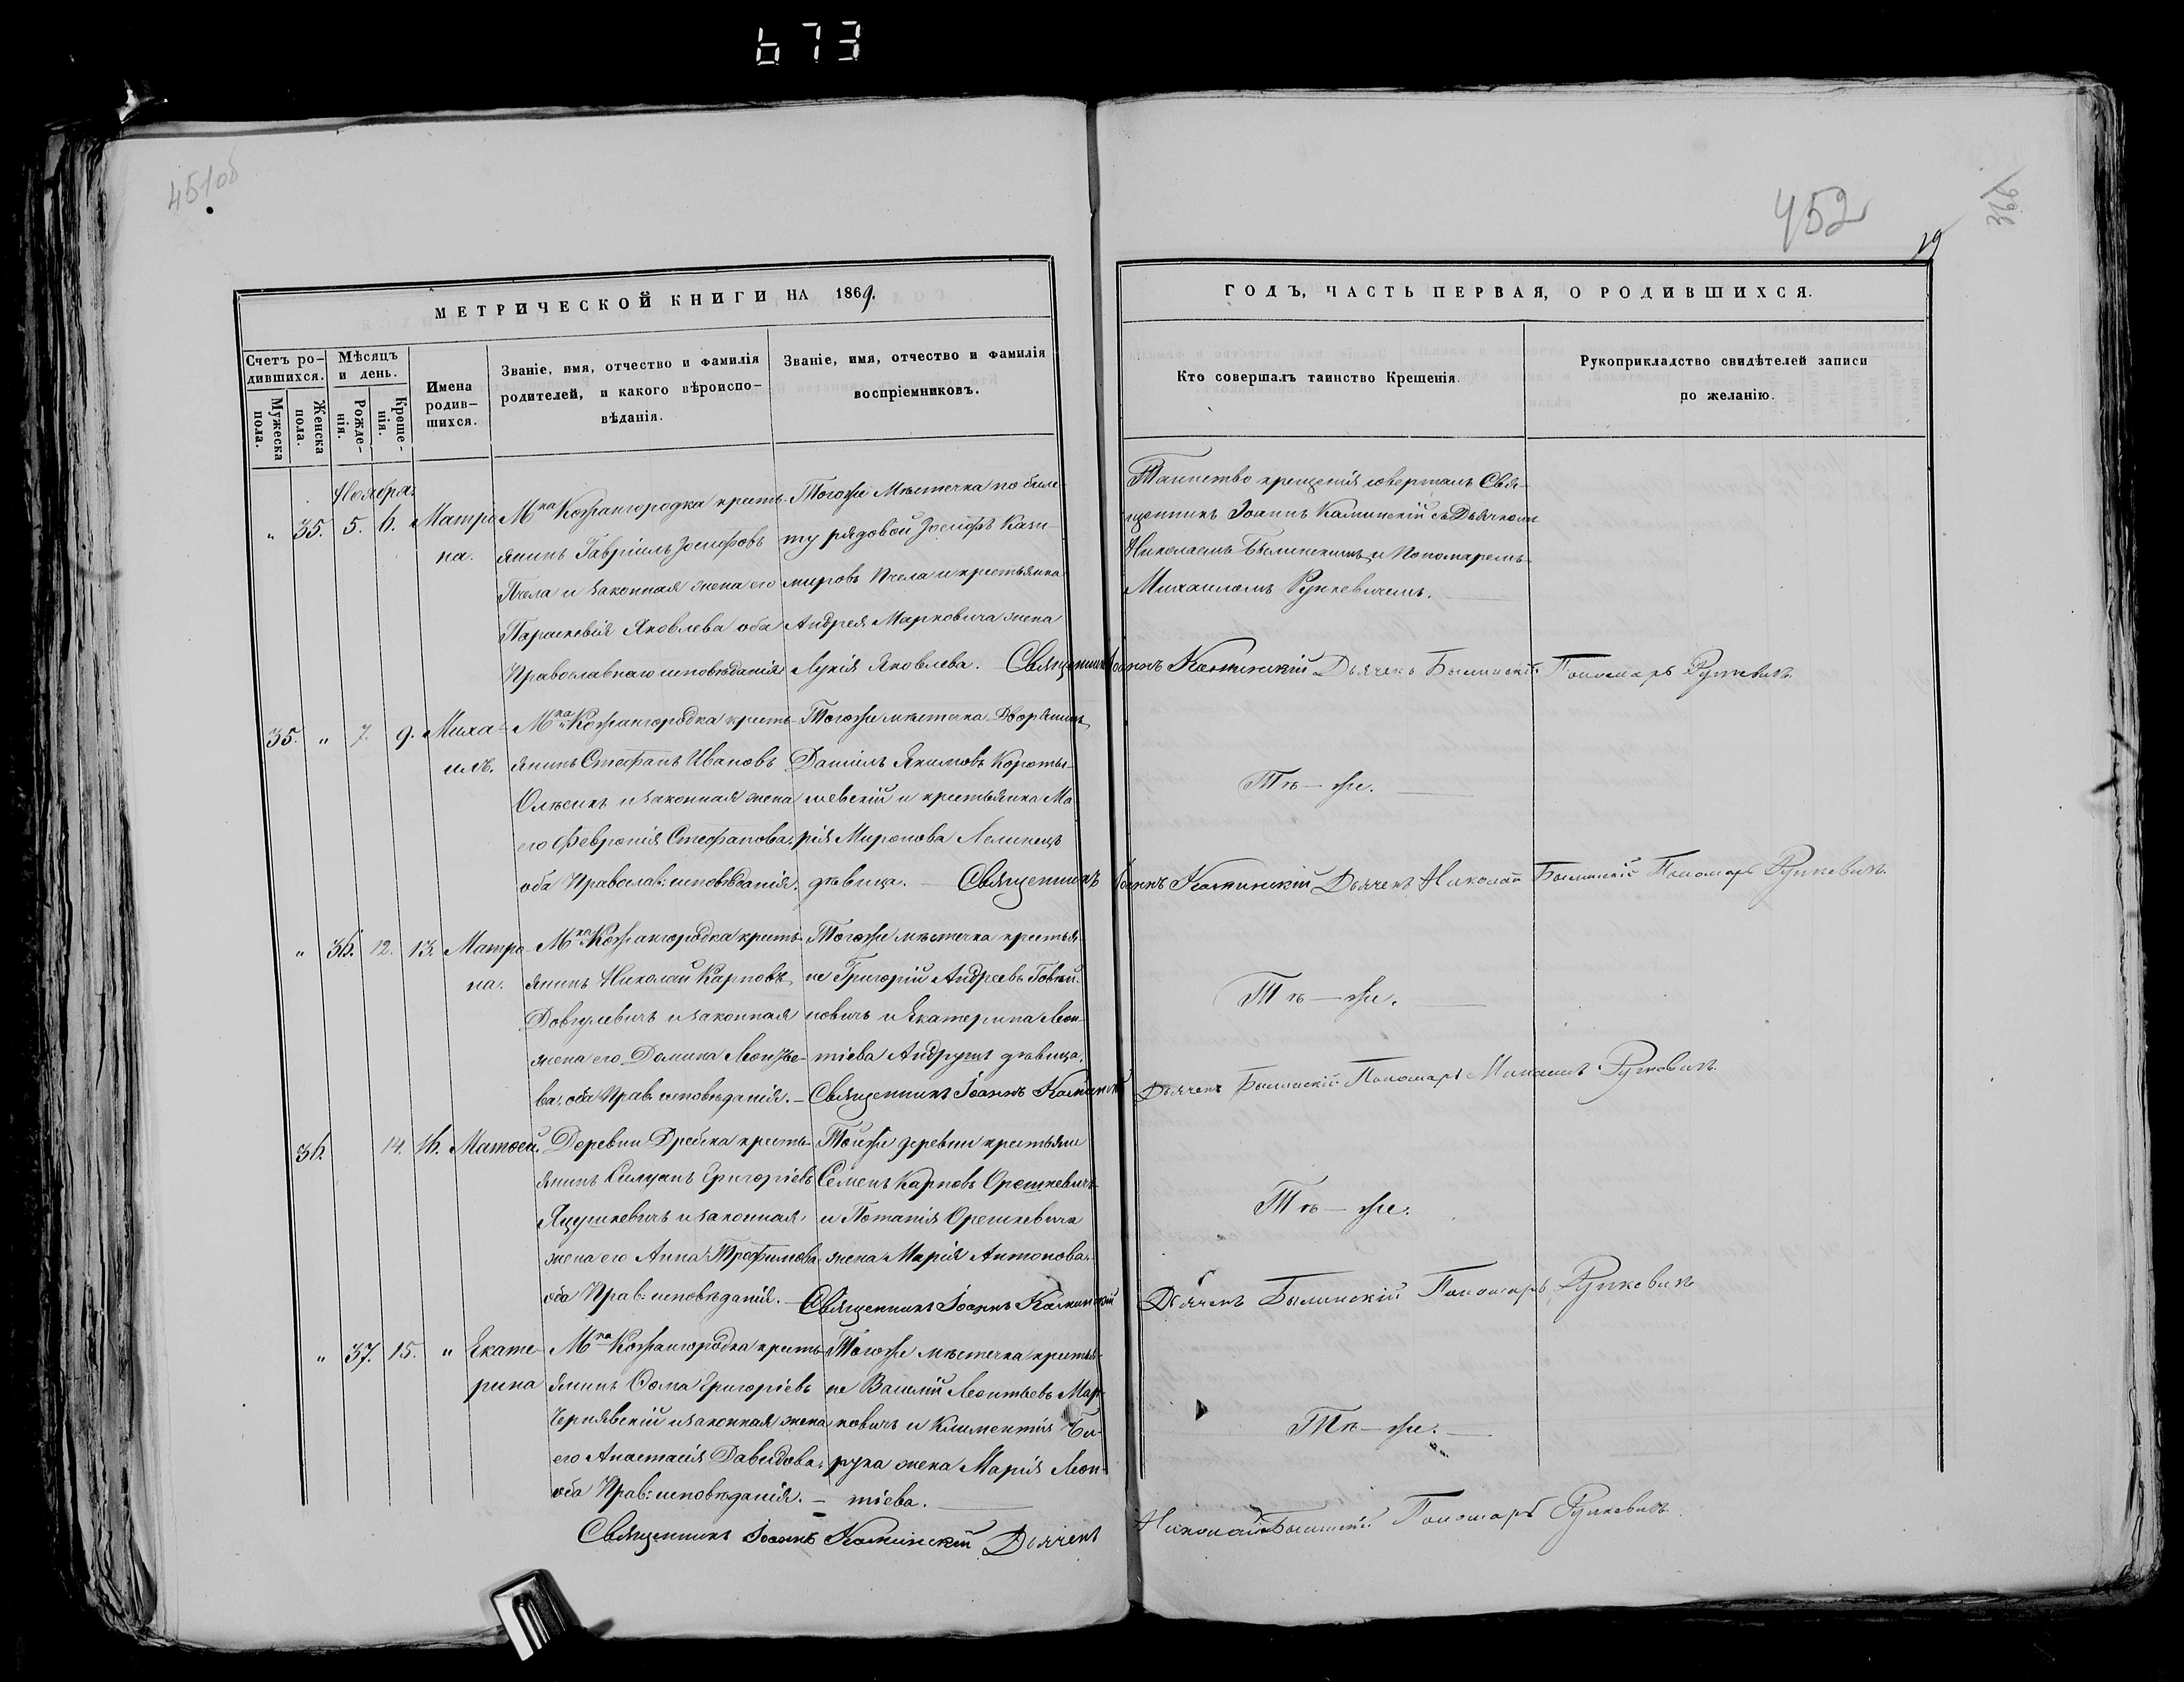 673
451об
452
366
19
МЕТРИЧЕСКОЙ КНИГИ НА 1869.
Счетъ ро-
дившихся.
Мужеска пола.
Женска пола.
Мѣсяцъ
и день.
Рожде-
нія.
Креще-
нія.
Имена
родив-
шихся.
Званіе, имя, отчество и фамилія
родителей, и какого вѣроиспо-
вѣданія.
Званіе, имя, отчество и фамилія
воспріемниковъ.
ГОДЪ, ЧАСТЬ ПЕРВАЯ, О РОДИВШИХСЯ.
Кто совершалъ таинство Крещенія.
Рукоприкладство свидѣтелей записи
по желанію.
Ноября:
" 35. 5. 6. Матро-
на.
Мка Кожангородка кресть-
янинъ Гавріилъ Іосифовъ
Пчела и законная жена его
Параскевія Яковлева оба
Православнаго исповѣданія
Тогоже Мѣстечка по биле-
ту рядовой Іосифъ Кази-
міровъ Пчела и крестьянка
Андрея Марковича жена
Лукія Яковлева.
Таинство крещенія совершалъ Свя-
щенникъ Іоаннъ Каминскій съ Дьячкомъ
Николаемъ Былинскимъ и Пономаремъ
Михаиломъ Рункевичемъ.
Священникъ Іоаннъ Каминскій Дьячекъ Былинскій Пономарь Рункевичъ
35. " 7. 9. Миха-
илъ.
Мка Кожангородка кресть-
янинъ Стефанъ Ивановъ
Олѣсикъ и законная жена
его Февронія Стефанова.
оба Православ: исповѣданія.
Тогоже мѣстечка Дворянинъ
Даніилъ Якимовъ Короты-
шевскій и крестьянка Ма-
рія Миронова Лелинецъ
дѣвица.
Тѣ-же.
Священникъ Іоаннъ Каминскій Дьячекъ Николай Былинскій Пономарь Рункевичъ
" 36. 12. 13. Матро-
на.
Мка Кожангородка кресть-
янинъ Николай Карповъ
Довгулевичъ и законная
жена его Домина Леонтье-
ва, оба Прав. исповѣданія.
Тогоже мѣстечка крестья-
не Григорій Андреевъ
новичъ и Екатерина Леон-
тіева дѣвица.
Тѣ-же.
Священникъ Іоаннъ Каминскій Дьячекъ Былинскій Пономарь Михаилъ Рункевичъ
36. 14. 16. Матѳей.
Деревни Дребска кресть-
янинъ Силуанъ Григоріевъ
Яцушкевичъ и законная
жена его Анна Трофимова
оба Прав: исповѣданія.
Тойже деревни крестьяне
Семенъ Карповъ Орешкевичъ
и Потапія Орешкевича
жена Марія Антонова.
Тѣ-же.
Священникъ Іоаннъ Каминскій Дьячекъ Былинскій Пономарь Рункевичъ
" 37. 15. " Екате-
рина
Мка Кожангородка кресть-
янинъ Ѳома Григоріевъ
Чернявскій и законная жена
его Анастасія Давидова.
оба Прав: исповѣданія.
Тогоже мѣстечка крестья-
не Василій Леонтьевъ Мар-
ковичъ и Климентія Би-
рука жена Марія Леон-
тіева.
Тѣ-же.
Священникъ Іоаннъ Каминскій Дьячекъ Николай Былинскій Пономарь Рункевичъ